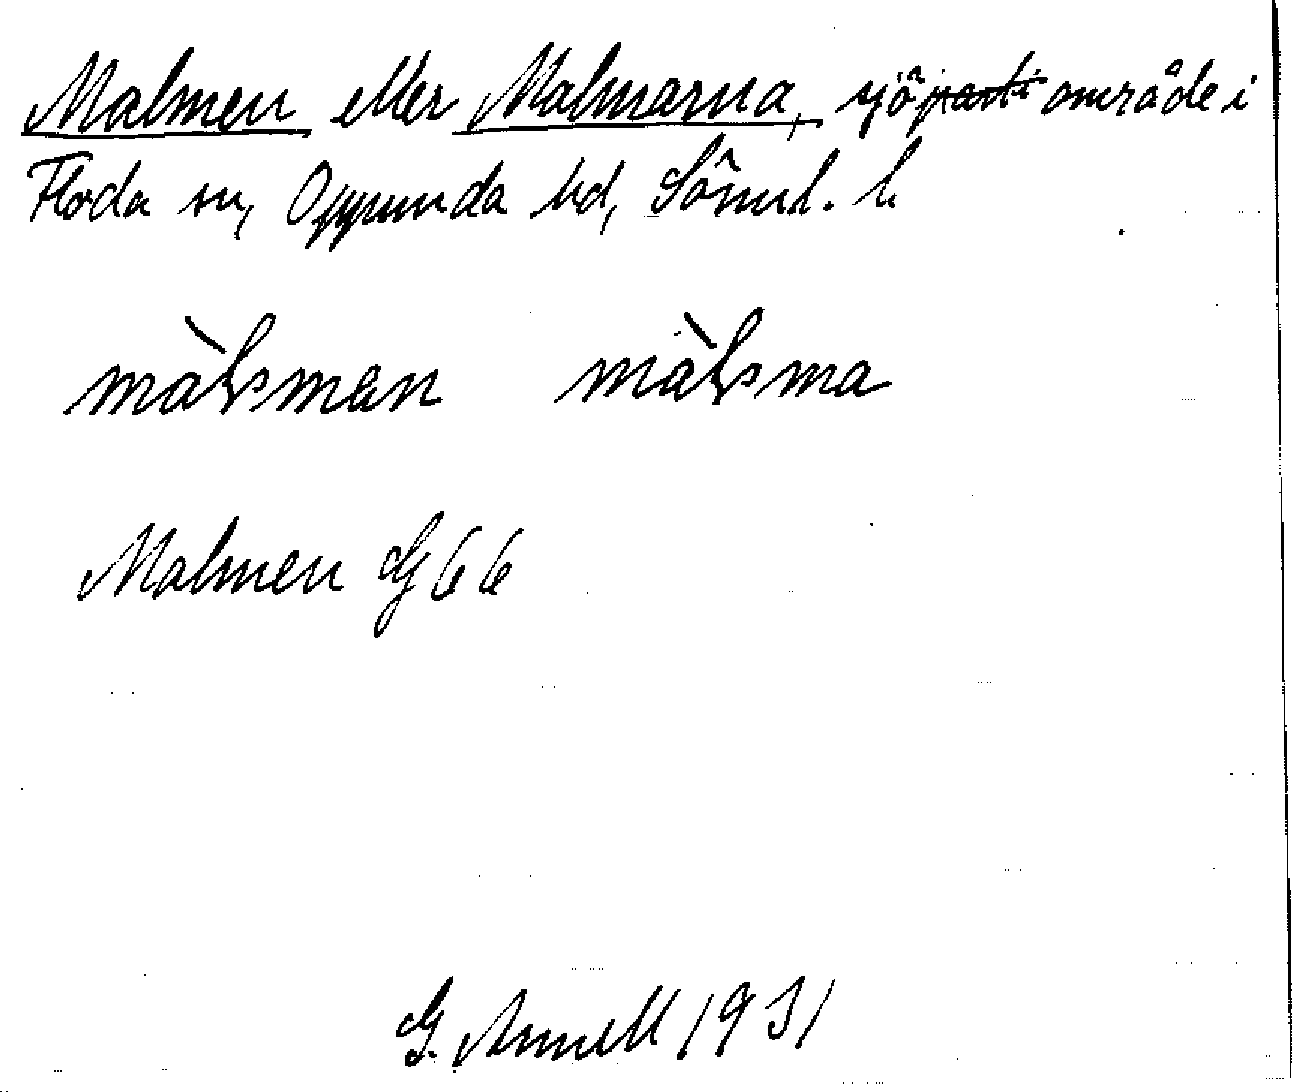 Malmen eller Malmarna, sjöparti område i
Floda sn, Oppunda hd, Sörml. l.
màlsmen màlsma
Malmen G 66
G. Annell 1931